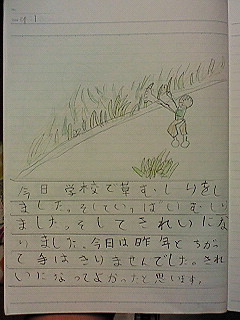 今日 学校で草むしりをし
ました。そしていっぱいむしり
ました。そしてきれいにな
りました。今日は昨年とちがっ
て手はきりませんでした。きれ
いになってよかったと思います。